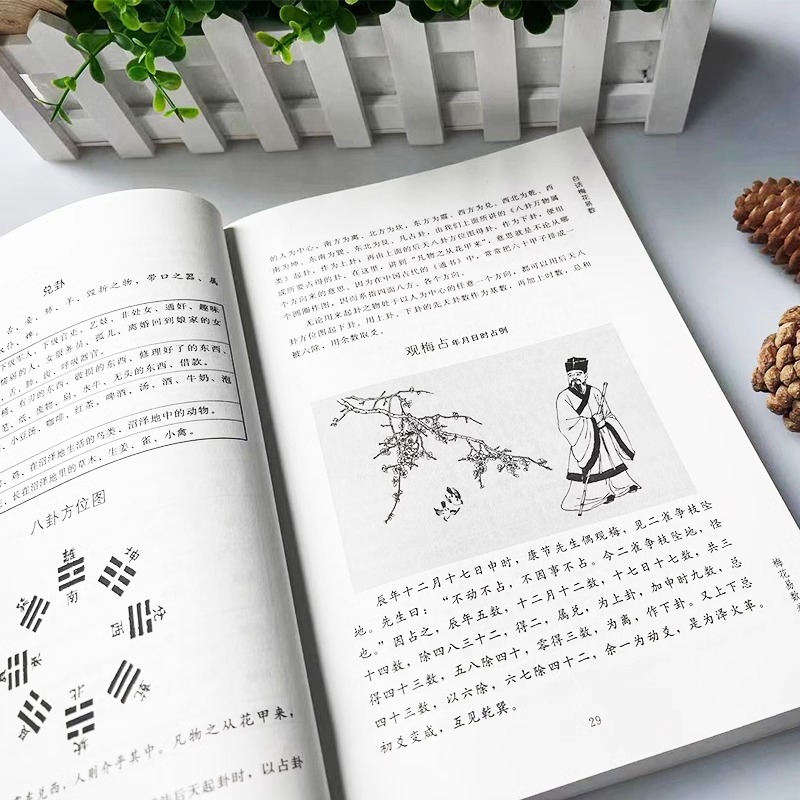 兑卦
舌、妾、肺、羊、毁折之物、带口之器、属
下级军人、下级官吏、艺妓、非处女、通奸、趣味
情病的人、女服务员、孤儿、离婚回到娘家的女
、舌、肺、齿、呼吸器官。
桶、有刃的东西、破损的东西、修理好了的东西、
笔、纸、废物、扇、水牛、无头的东西、借款。
、小豆汤、咖啡、红茶、啤酒、汤、酒、牛奶、泡
、鸡、在沼泽地生活的鸟类、沼泽地中的动物。
、长在沼泽地里的草木、生姜、雀、小禽。
八卦方位图
离
坤
南
巽
兑
西
震
东
北
乾
艮
坎
凡物之从花甲来，
震东兑西，人则介乎其中。
后天起卦时，以占卦
白话梅花易数
的人为中心，南方为离、北方为坎、东方为震、西方为兑、西北为乾、西
南为坤、东南为巽、东北为艮。凡占卦，由我们上面所讲的《八卦万物属
类》起卦，作为上卦；再由上面的后天八卦方位图得卦，作为下卦，便组
成所要占得的卦。在这里，讲到“凡物之从花甲来”，意思就是不论从哪
个方向来的意思。因为在中国古代的《通书》中，常常把六十甲子排成一
个圆圈作图，因而系指四面八方、各个方向。
无论用来起卦之物处于以人为中心的任意一个方向，都可以用后天八
卦方位图起下卦，用上卦、下卦的先天卦数作为基数，再加上时数，总和
被六除，用余数取爻。
观梅占年月日时占例
辰年十二月十七日申时，康节先生偶观梅，见二雀争枝坠
地。先生曰：“不动不占，不因事不占。今二雀争枝坠地，怪
也。”因占之，辰年五数，十二月十二数，十七日十七数，共三
十四数，除四八三十二，得二，属兑，为上卦，加申时九数，总
得四十三数，五八除四十，零得三数，为离，作下卦。又上下总
四十三数，以六除，六七除四十二，余一为动爻，是为泽火革。
初爻变成，互见乾巽。
29
梅花易数